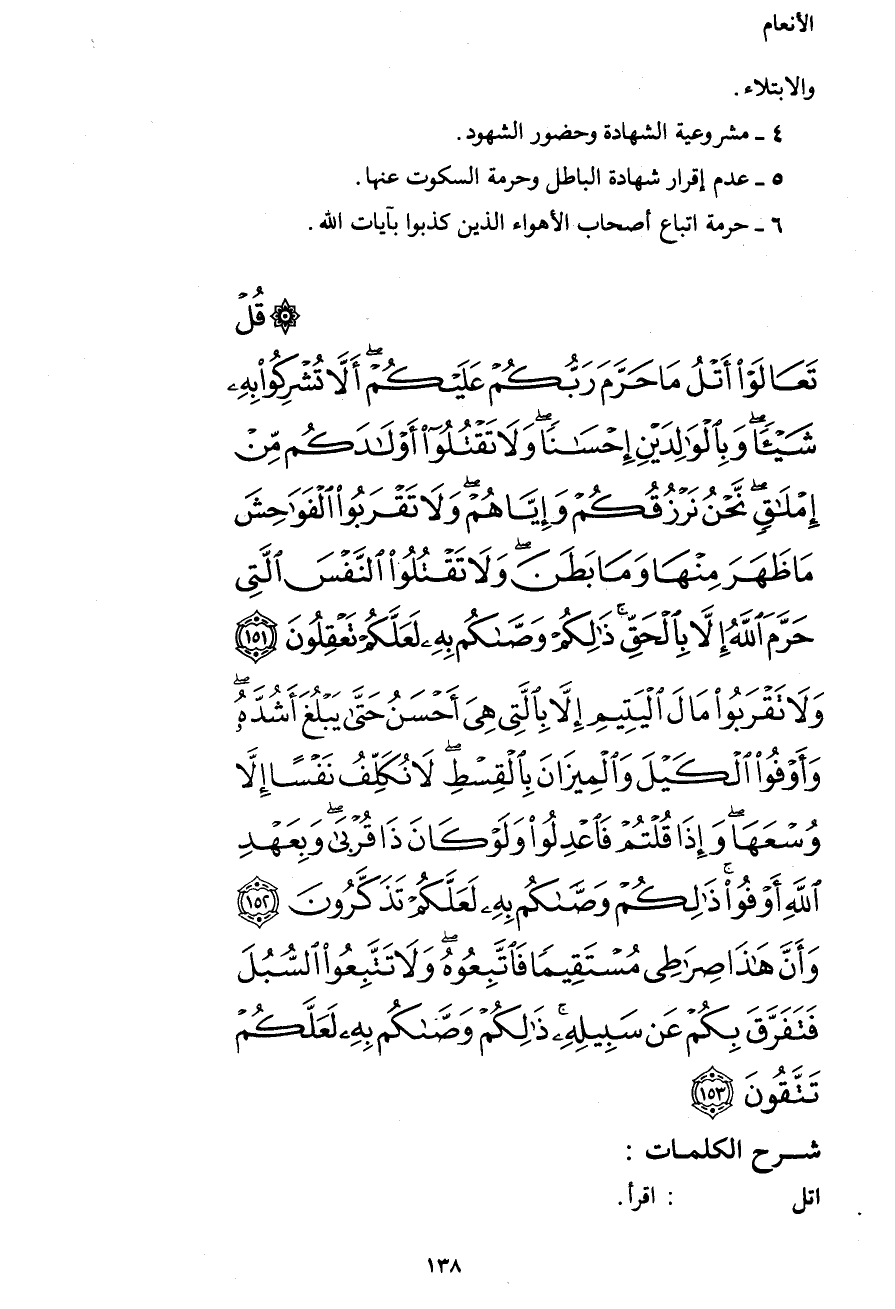 الأنعام
والابتلاء.
٤ ـ مشروعية الشهادة وحضور الشهود.
٥ ـ عدم إقرار شهادة الباطل وحرمة السكوت عنها.
٦ ـ حرمة اتباع أصحاب الأهواء الذين كذبوا بآيات الله.
۞ قُلۡ
تَعَالَوۡاْ أَتۡلُ مَا حَرَّمَ رَبُّكُمۡ عَلَيۡكُمۡۖ أَلَّا تُشۡرِكُواْ بِهِۦ
شَيۡـٔٗاۖ وَبِٱلۡوَٰلِدَيۡنِ إِحۡسَٰنٗاۖ وَلَا تَقۡتُلُوٓاْ أَوۡلَٰدَكُم مِّنۡ
إِمۡلَٰقٖۖ نَّحۡنُ نَرۡزُقُكُمۡ وَإِيَّاهُمۡۖ وَلَا تَقۡرَبُواْ ٱلۡفَوَٰحِشَ
مَا ظَهَرَ مِنۡهَا وَمَا بَطَنَۖ وَلَا تَقۡتُلُواْ ٱلنَّفۡسَ ٱلَّتِي
حَرَّمَ ٱللَّهُ إِلَّا بِٱلۡحَقِّۚ ذَٰلِكُمۡ وَصَّىٰكُم بِهِۦ لَعَلَّكُمۡ تَعۡقِلُونَ ١٥١
وَلَا تَقۡرَبُواْ مَالَ ٱلۡيَتِيمِ إِلَّا بِٱلَّتِي هِيَ أَحۡسَنُ حَتَّىٰ يَبۡلُغَ أَشُدَّهُۥۖ
وَأَوۡفُواْ ٱلۡكَيۡلَ وَٱلۡمِيزَانَ بِٱلۡقِسۡطِۖ لَا نُكَلِّفُ نَفۡسًا إِلَّا
وُسۡعَهَاۖ وَإِذَا قُلۡتُمۡ فَٱعۡدِلُواْ وَلَوۡ كَانَ ذَا قُرۡبَىٰۖ وَبِعَهۡدِ
ٱللَّهِ أَوۡفُواْۚ ذَٰلِكُمۡ وَصَّىٰكُم بِهِۦ لَعَلَّكُمۡ تَذَكَّرُونَ ١٥٢
وَأَنَّ هَٰذَا صِرَٰطِي مُسۡتَقِيمٗا فَٱتَّبِعُوهُۖ وَلَا تَتَّبِعُواْ ٱلسُّبُلَ
فَتَفَرَّقَ بِكُمۡ عَن سَبِيلِهِۦۚ ذَٰلِكُمۡ وَصَّىٰكُم بِهِۦ لَعَلَّكُمۡ
تَتَّقُونَ ١٥٣
شـرح الكلمـات :
اتل : اقرأ.
١٣٨